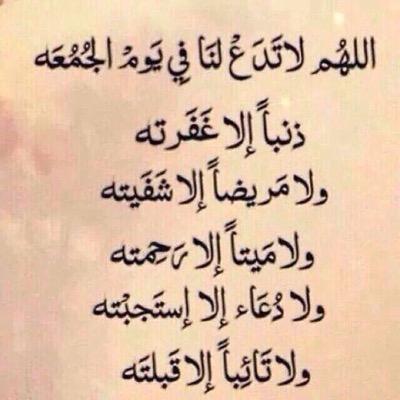 اللهُم لا تَدَعْ لنَا فِي يَومْ الجُمُعَه
ذنباً إلا غَفَرته
ولا مَريضاً إلا شَفَيته
ولا مَيتاً إلا رَحِمته
ولا دُعَاء إلا إستَجبْته
ولا تَائِباً إلا قَبلتَه